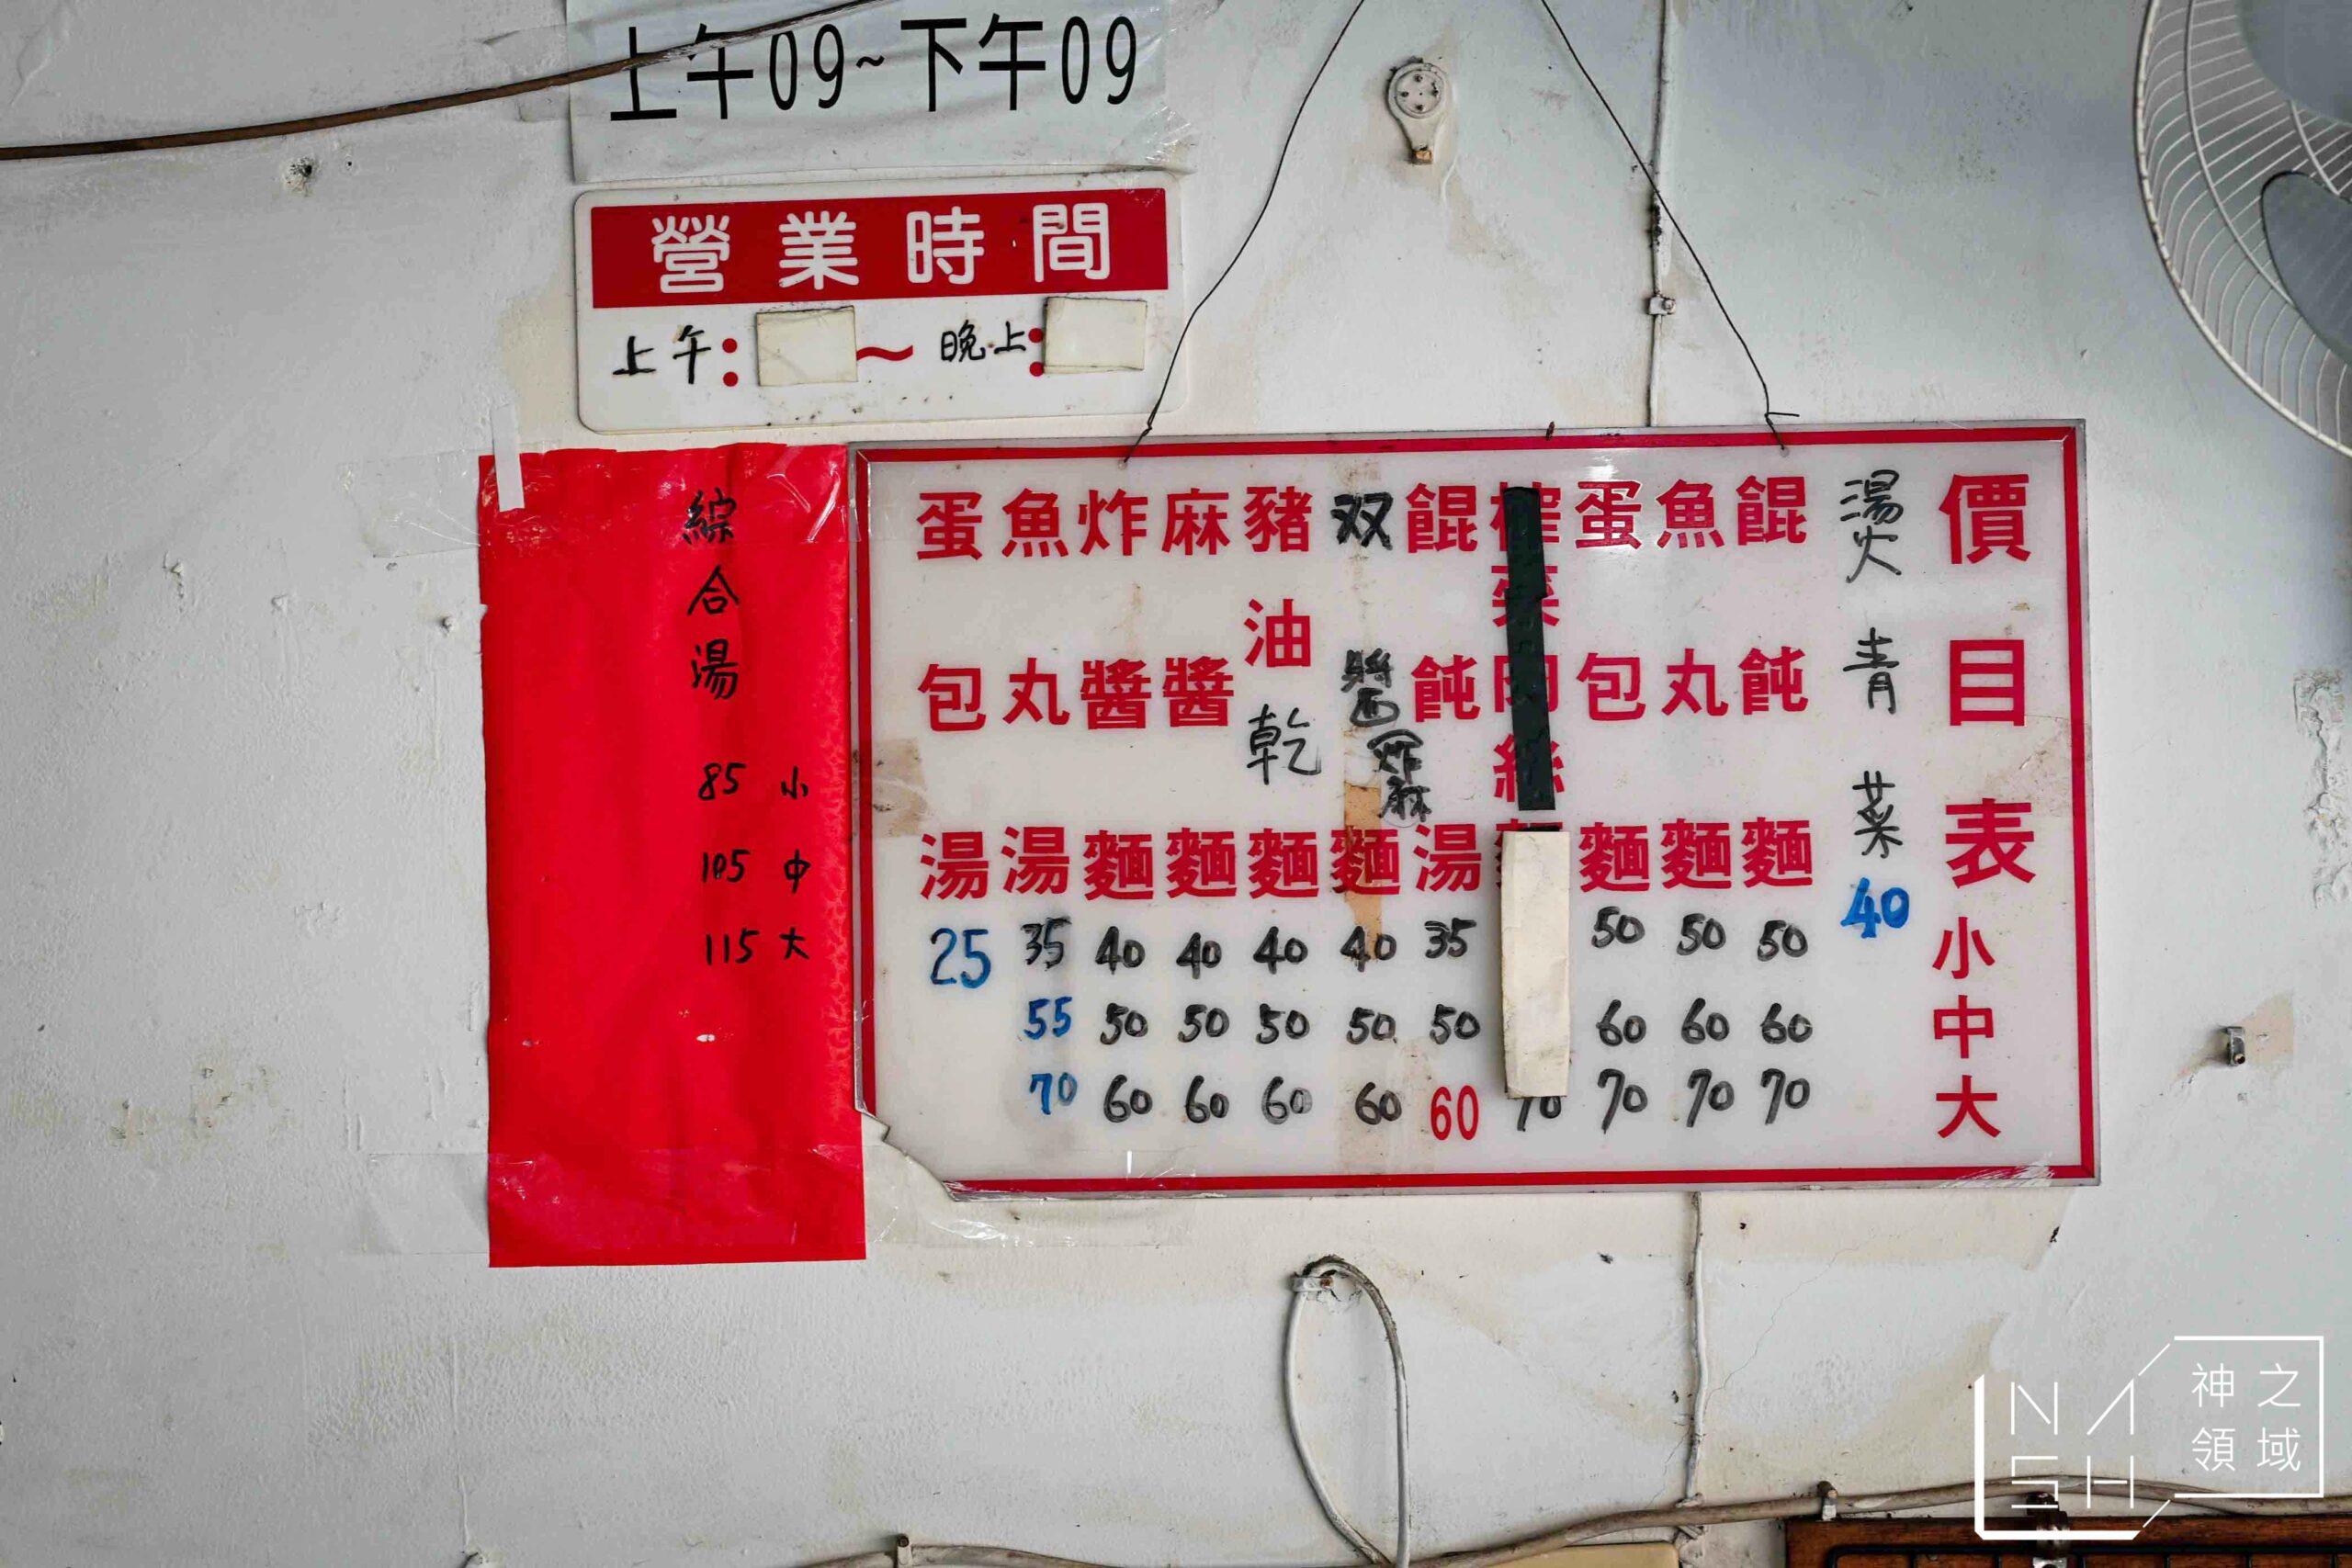 上午09~下午09
營業時間
上午：～晚上：
價目表 小 中 大
燙青菜 40
餛飩麵 50 60 70
魚丸麵 50 60 70
蛋包麵 50 60 70
榨菜肉絲麵 70
餛飩湯 35 50 60
双醬(炸麻麵 40 50 60
豬油乾麵 40 50 60
麻醬麵 40 50 60
炸醬麵 40 50 60
魚丸湯 35 55 70
蛋包湯 25
綜合湯
85 小
105 中
115 大
NASH
神之領域